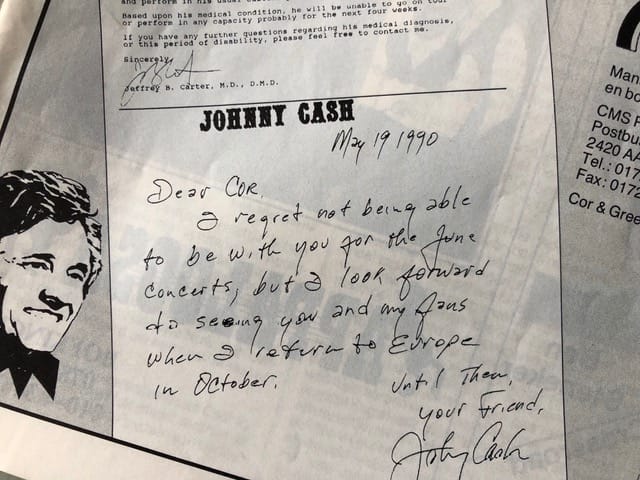 and perform in his usual
Based upon his medical condition, he will be unable to go on tour
or perform in any capacity probably for the next four weeks.
If you have any further questions regarding his medical diagnosis,
or this period of disability, please feel free to contact me.
Sincerely
Jeffrey B. Carter, M.D., D.M.D.
JOHNNY CASH
May 19 1990
Dear COR.
I regret not being able
to be with you for the June
concerts, but I look forward
to seeing you and my fans
when I return to Europe
in October.
Until Then,
your Friend,
Johnny Cash
Man
en bo
CMS P
Postbu
2420 AA
Tel.: 017
Fax: 0172
Cor & Gree